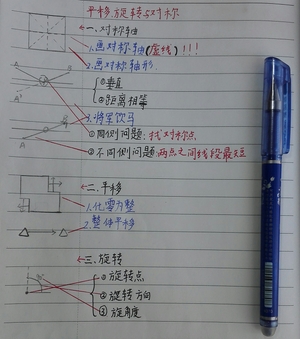 平移,旋转与对称
一.对称轴
1.画对称轴(虚线)!!!
2.画对称轴形.
①垂直
②距离相等
3.将军饮马
①同侧问题:找对称点
②不同侧问题:两点之间线段最短
二.平移
1.化零为整
2.整体平移
三.旋转
①旋转点
②旋转方向
③旋角度
A
A'
A